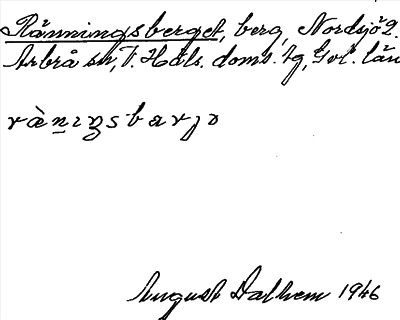 Rånningsberget, berg, Nordsjö 2.
Arbrå sn, V. Häls. doms. tg, Gvl. län
rὰn̲ɪŋsbarjɔ
August Dalhem 1946